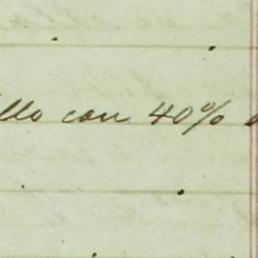 llo con 40%